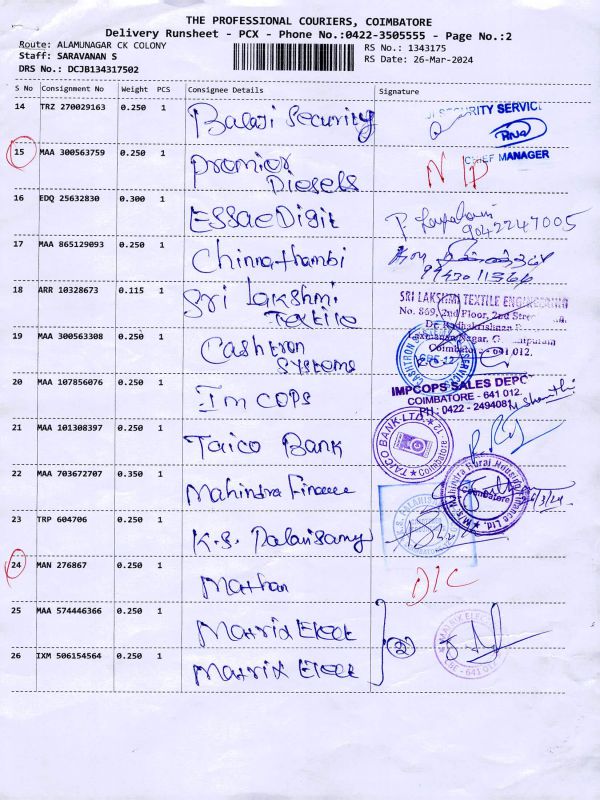 THE PROFESSIONAL COURIERS, COIMBATORE
Delivery Runsheet - PCX - Phone No.:0422-3505555 - Page No.:2
Route: ALAMUNAGAR CK COLONY
RS No.: 1343175
Staff: SARAVANAN S
RS Date: 26-Mar-2024
DRS No.: DCJB134317502
S No Consignment No Weight PCS Consignee Details Signature
14 TRZ 270029163 0.250 1 Balaji Security
SECURITY SERVIC
CHIEF MANAGER
15 MAA 300563759 0.250 1 Premier
Diesels
N P
16 EDQ 25632830 0.300 1 Essae Digit
9042247005
17 MAA 865129093 0.250 1 Chinnathambi
18 ARR 10328673 0.115 1 Sri Lakshmi
Textile
SRI LAKSHMI TEXTILE ENGINEERING
No. 869, 2nd Floor, 2nd Street
Coimbatore - 641 012.
19 MAA 300563308 0.250 1 Cashtron
Systems
20 MAA 107856076 0.250 1 Imcops
IMPCOPS SALES DEPOT
COIMBATORE - 641 012.
PH : 0422 - 2494081
21 MAA 101308397 0.250 1 Taico Bank
TAICO BANK LTD
Coimbatore - 12
22 MAA 703672707 0.350 1 Mahindra Finance
M/s. Mahindra Rural Housing Finance Ltd.
Coimbatore
23 TRP 604706 0.250 1 K.S. Palanisamy
24 MAN 276867 0.250 1 Mathan
D/C
25 MAA 574446366 0.250 1 Matrix Elect
2
26 IXM 506154564 0.250 1 Matrix Elect